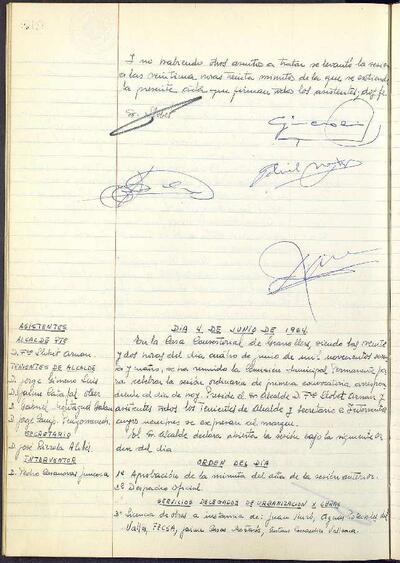 I no habiendo otros asuntos a tratar se levantó la sesión
a las veintiuna horas treinta minutos de la que se extiende
la presente acta que firman todos los asistentes, doy fe.
ASISTENTES
ALCALDE PTE
D. Fco Llobet Arnan
TENENTES DE ALCALDE
D. Jorge
D. Jaime
D. Gabriel
D. Jorge
SECRETARIO
D. José
INTERVENTOR
D. Pedro Casanovas Juncosa
DIA 4 DE JUNIO DE 1964.
En la Casa Consistorial de Granollers, siendo las veinte
y dos horas del día cuatro de junio de mil novecientos sesenta
y cuatro, se ha reunido la Comisión Municipal Permanente pa-
ra celebrar la sesión ordinaria de primera convocatoria
diente al día de hoy. Preside el Sr. Alcalde D. Fco Llobet Arnan y
asisten todos los Tenientes de Alcalde y Secretario e Interventor
cuyos nombres se expresan al margen.
El Sr. Alcalde declara abierta la sesión bajo la siguiente or-
den del día
ORDEN DEL DÍA
1º Aprobación de la minuta del acta de la sesión anterior.
2º Despacho Oficial.
SERVICIOS DELEGADOS DE URBANIZACION Y OBRAS
3º Licencia de obras a instancia de: Juan
Vallés, FECSA, Jaime